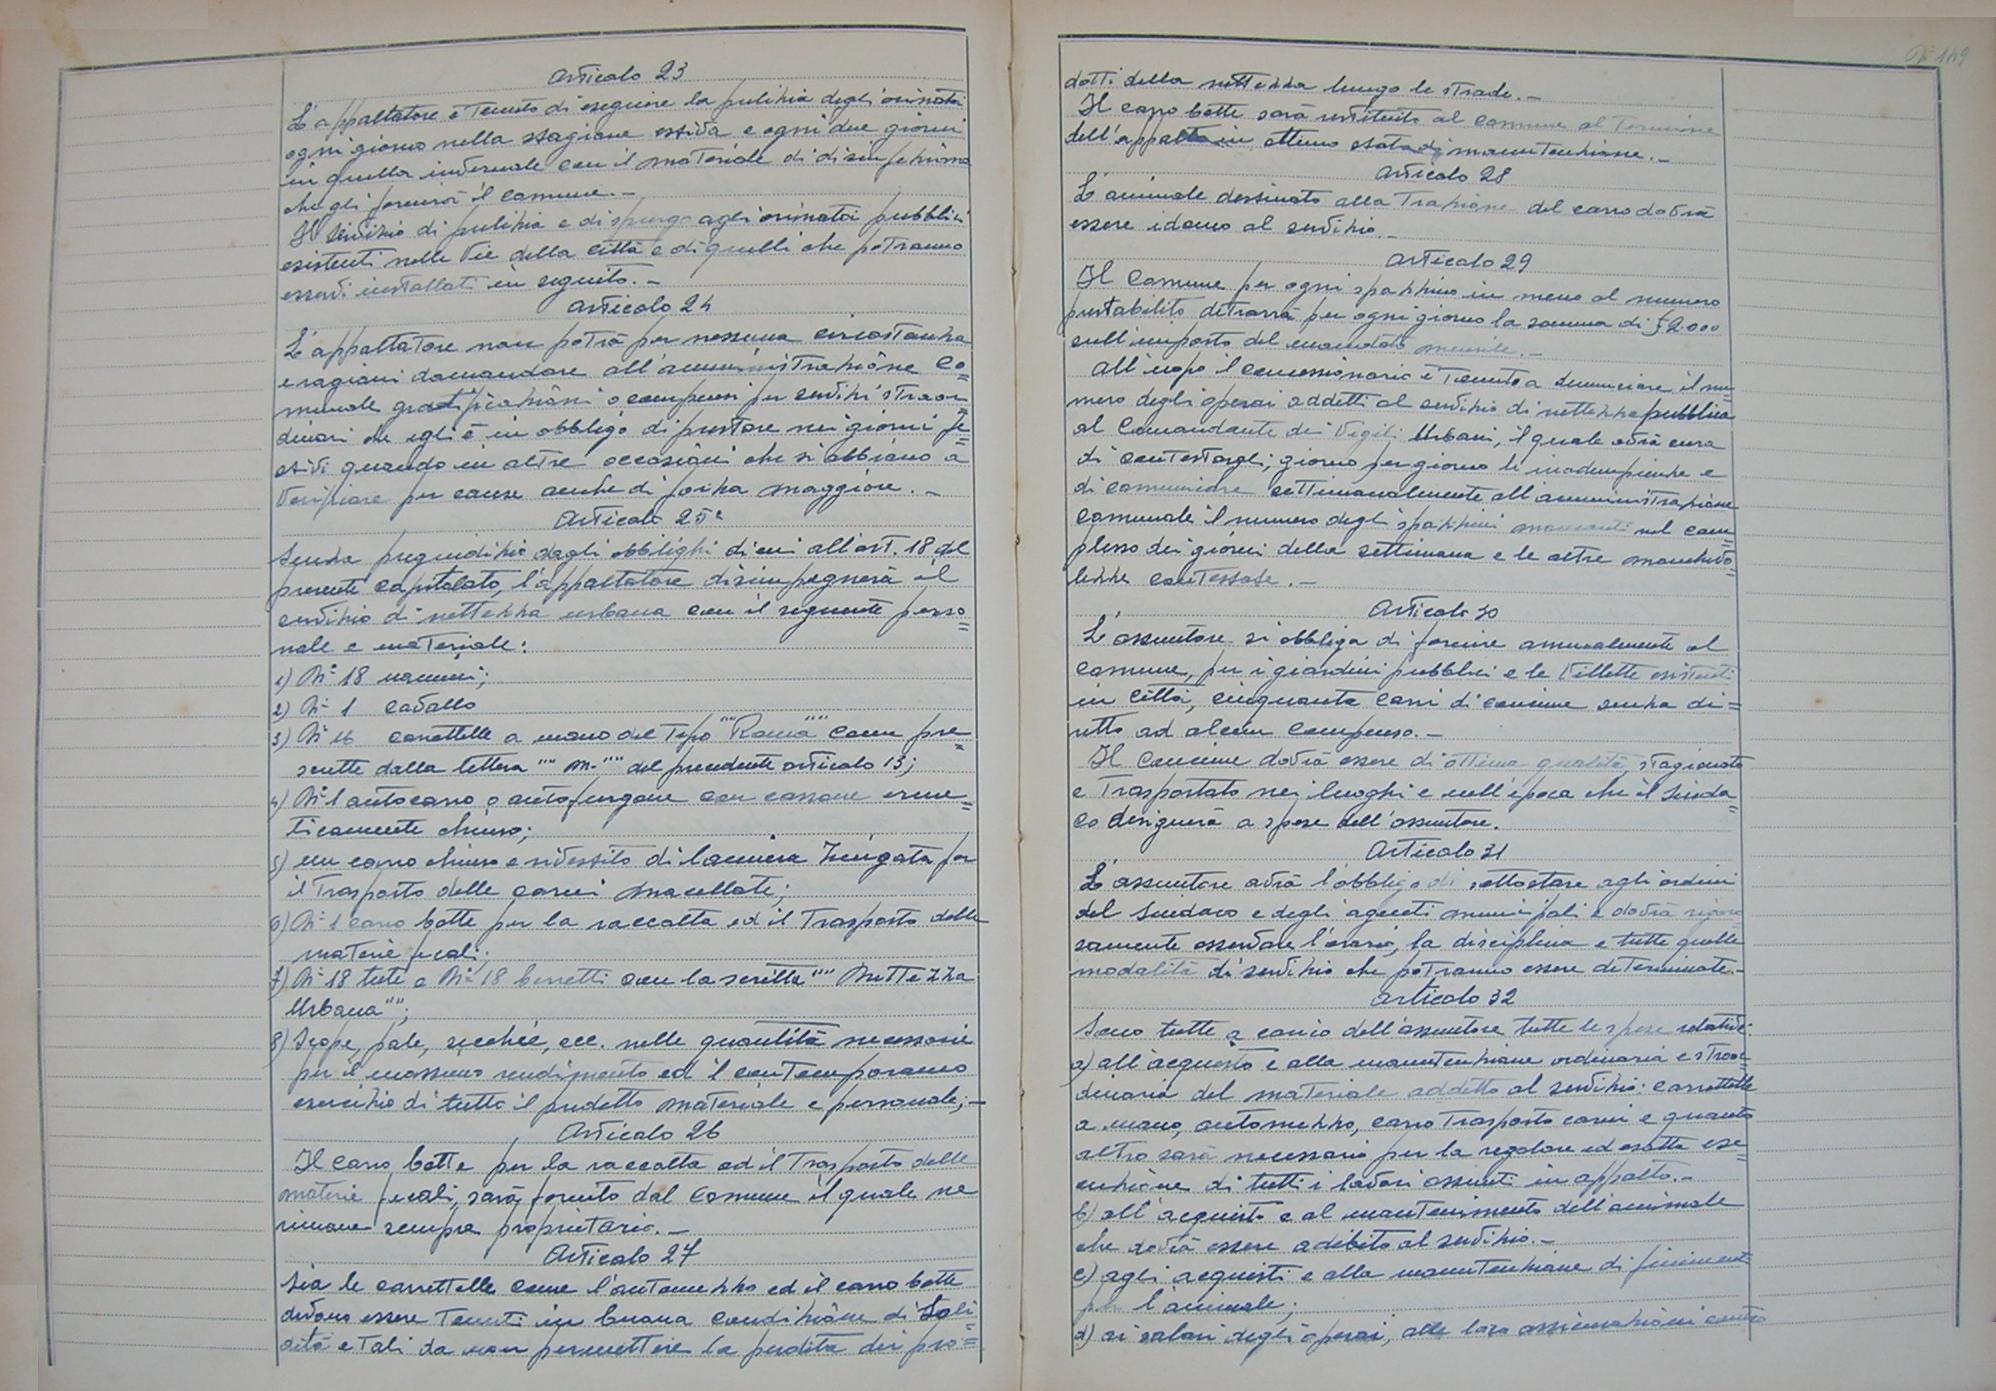 Articolo 23
L'appaltatore è tenuto di eseguire la pulizia degli orinatoi
ogni giorno nella stagione estiva e ogni due giorni
in quella invernale con il materiale di disinfezione
che gli fornirà il Comune.-
Il servizio di pulizia e di spurgo agli orinatoi pubblici
esistenti nelle Vie della città e di quelli che potranno
essere installati in seguito.-
Articolo 24
L'appaltatore non potrà per nessuna circostanza
e ragioni domandare all'amministrazione Co=
munale gratificazioni o compensi per servizi straor=
dinari che egli è in obbligo di prestare nei giorni fe=
stivi quando in altre occasioni che si abbiano a
verificare per cause anche di forza maggiore.-
Articolo 25°
Senza pregiudizio degli obblighi di cui all'art. 18 del
presente capitolato, l'appaltatore disimpegnerà il
servizio di nettezza urbana con il seguente perso=
nale e materiale:
1) N° 18 uomini;
2) N° 1 cavallo
3) N° 16 carrettelle a mano del Tipo ""Roma"" come pre=
scritte dalla lettera ""m-"" del precedente articolo 13;
4) N° 1 autocarro o autofurgone con cassone erme=
ticamente chiuso;
5) un carro chiuso e rivestito di lamiera zingata per
il trasporto delle carni macellate;
6) N° 1 carro botte per la raccolta ed il trasporto delle
materie fecali;
7) N° 18 tute e N° 18 berretti con la scritta "" Nettezza
Urbana"";
8) Scope, pale, secchie, ecc. nelle quantità necessarie
per il massimo rendimento ed il contemporaneo
esercizio di tutto il predetto materiale e personale;-
Articolo 26
Il carro botte per la raccolta ed il trasporto delle
materie fecali, sarà fornito dal Comune il quale ne
rimane sempre proprietario.-
Articolo 27
Sia le carrettelle come l'automezzo ed il carro botte
devono essere tenuti in buona condizione di soli=
dità e tali da non permettere la perdita dei pro=
N° 149
dotti della nettezza lungo le strade.-
Il carro botte sarà restituito al Comune al termine
dell'appalto in ottimo stato di manutenzione.-
Articolo 28
L'animale destinato alla trazione del carro dovrà
essere idoneo al servizio.-
Articolo 29
Il Comune per ogni spazzino in meno al numero
prestabilito detrarrà per ogni giorno la somma di £ 2.000
sull'importo del mandato mensile.-
All'uopo il concessionario è tenuto a denunciare il nu=
mero degli operai addetti al servizio di nettezza pubblica
al Comandante dei Vigili Urbani, il quale avrà cura
di contestargli; giorno per giorno le inadempienze e
di comunicare settimanalmente all'amministrazione
Comunale il numero degli spazzini mancanti nel com=
plesso dei giorni della settimana e le altre manchevo=
lezze contestate.-
Articolo 30
L'assuntore si obbliga di fornire annualmente al
Comune, per i giardini pubblici e le villette esistenti
in città, cinquanta carri di concime senza di=
ritto ad alcun compenso.-
Il concime dovrà essere di ottima qualità, stagionato
e trasportato nei luoghi e nell'epoca che il Sinda=
co designerà a spese dell'assuntore.
Articolo 31
L'assuntore avrà l'obbligo di sottostare agli ordini
del Sindaco e degli agenti municipali e dovrà rigoro
samente osservare l'orario, la disciplina e tutte quelle
modalità di servizio che potranno essere determinate.-
Articolo 32
Sono tutte a carico dell'assuntore tutte le spese relative:
a) all'acquisto e alla manutenzione ordinaria e straor=
dinaria del materiale addetto al servizio: carrettelle
a mano, automezzo, carro trasporto carni e quanto
altro sarà necessario per la regolare ed esatta ese=
cuzione di tutti i lavori assunti in appalto.-
b) all'acquisto e al mantenimento dell'animale
che dovrà essere adibito al servizio.-
c) agli acquisti e alla manutenzione di finimenti
per l'animale;
d) ai salari degli operai, alle loro assicurazioni contro